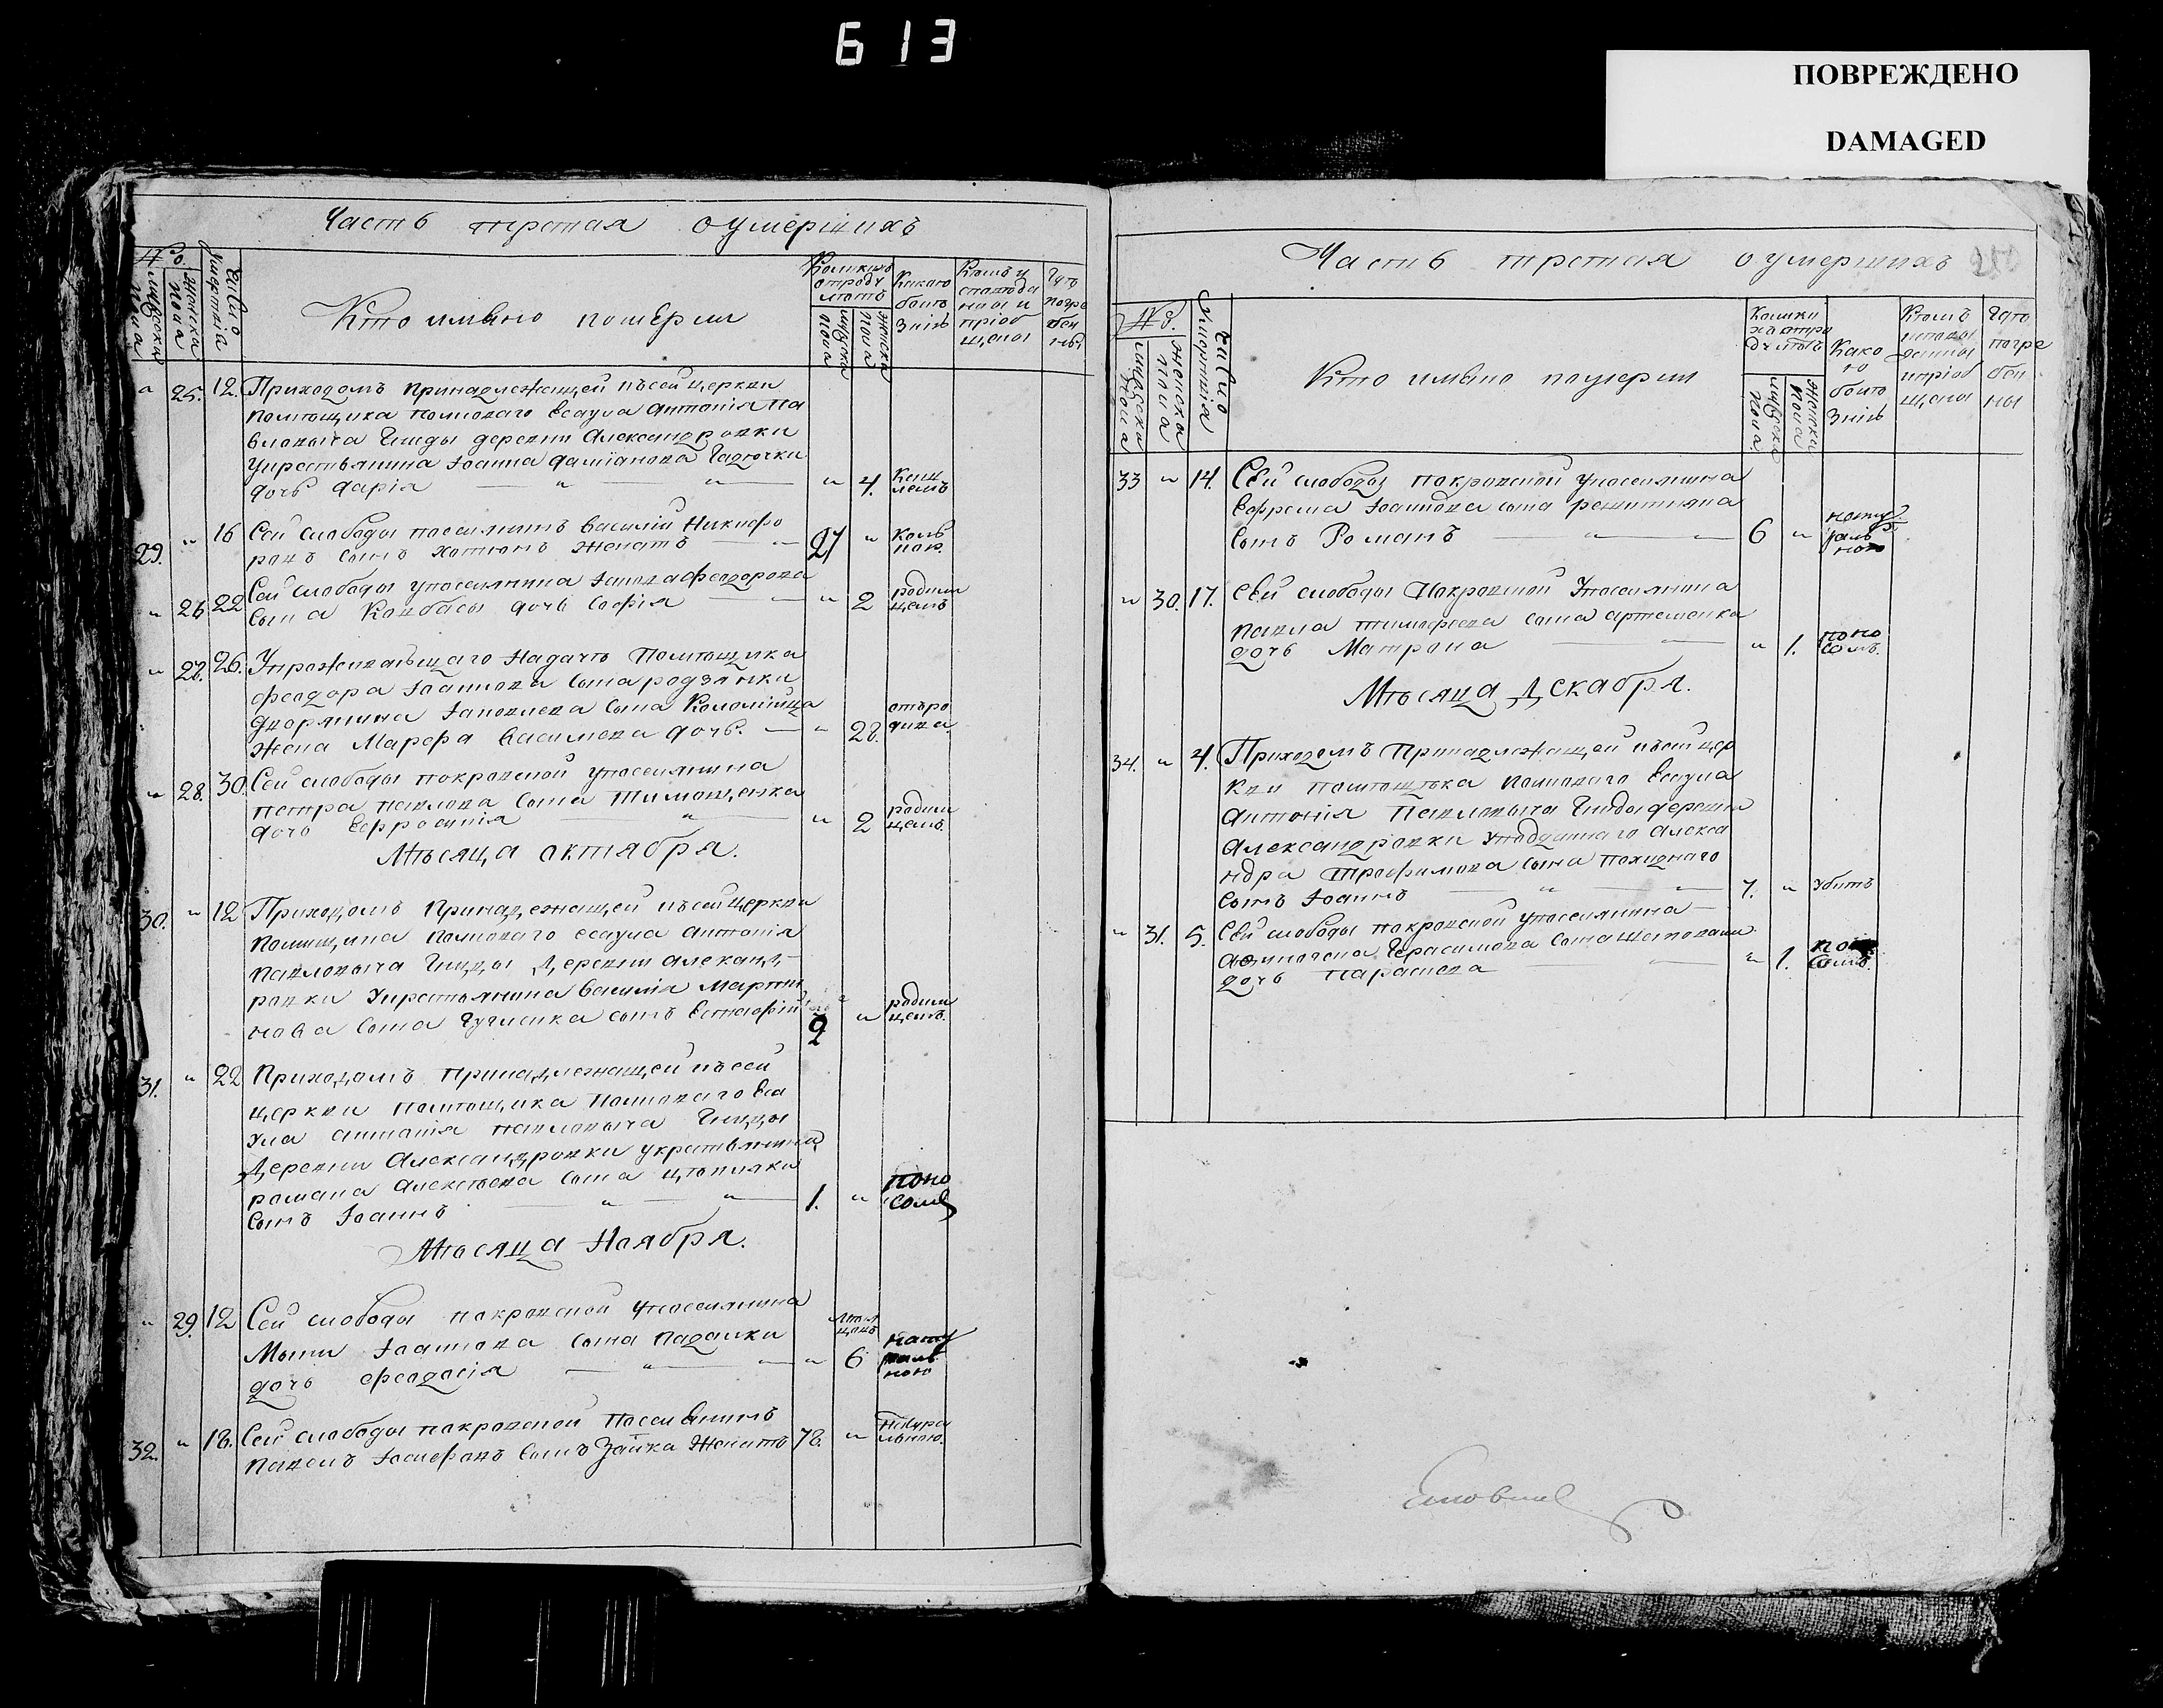 613
ПОВРЕЖДЕНО
DAMAGED
Часть третая оумершихъ
№
мужеска пола
женска пола
число умертвія
Кто имѣно померли
Каликихъ отроду лѣтъ
мужска пола
женска пола
Какою болѣзнію
Кѣмъ исповѣданы и пріобщены
Гдѣ погребены
" 25. 12. Приходомъ принадлежащей къ сей церкви
помѣщика полковаго есаула Антонія Па
вловыча Гниды деревни Александровки
у крестьянина Іоанна Даміанова Гадючки
дочь Дарія " " " 4. кашлемъ
29. " 16 Сей слободы поселянинъ Василій Никифо
ровъ сынъ женатъ 27 "
" 26 22 Сей слободы у поселянина Іакова Феодорова
сына Ковбасы дочь Софія " 2 родимцемъ
" 27. 26. У проживающаго на дачѣ помѣщика
Феодора Іоаннова сына Родзянки
дворянина сына Коломійца
жена Марфа Василиева дочь. " 28.
" 28. 30. Сей слободы Покровской у поселянина
Петра Павлова сына Тимошенка
дочь Евфросинія " " 2 родимцемъ.
Мѣсяца октября.
30. " 12 Приходомъ принадлежащей къ сей церкви
помищика полковаго есаула Антонія
Павловыча Гниды деревни Александ-
ровки у крестьянина Василія Марти
нова сына сынъ Евстафій 2 " родимцемъ.
31. " 22 Приходомъ принадлежащей къ сей
церкви помѣщика полковаго еса
ула Антонія Павловыча Гниды
деревни Александровки у крестьянина
Романа Алексѣева сына Цѣпиляки
сынъ Іоаннъ " " 1. " поносомъ
Мѣсяца Ноября.
" 29. 12 Сей слободы Покровской у поселянина
Іоаннова сына Падалки
дочь Феодосія " " 6 натуральною
32. " 18. Сей слободы Покровской поселянинъ
Павелъ Іосифовъ сынъ Зайка женатъ 78. " натуральною.
Часть третая оумершихъ
№
мужеска пола
женска пола
число умертвія
Кто имѣно поумерли
мужска пола
женска пола
Какою болѣзнію
Гдѣ погребены
33 " 14. Сей слободы Покровской у поселянина
Ефрема Іоаннова сына Решитняка
сынъ Романъ " " 6 " натуральною
" 30. 17. Сей слободы Покровской у поселянина
Павла Тимофеева сына Артеменка
дочь Матрона " 1. поносомъ.
Мѣсяца Декабря.
34. " 4. Приходомъ принадлежащей къ сей цер
кви помѣщика полковаго есаула
Антонія Павловыча Гниды деревни
Александровки у подданнаго Алекса
ндра Трофимова сына Походнаго
сынъ Іоаннъ " " 7. " убитъ
" 31. 5. Сей слободы Покровской у поселянина
Герасимова сына
дочь Параскева " 1. поносомъ.